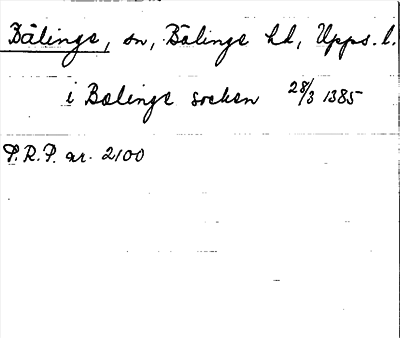 Bälinge, sn, Bälinge hd, Upps. l.
i Bælinge sokken 28/3 1385
P.R.P. nr. 2100